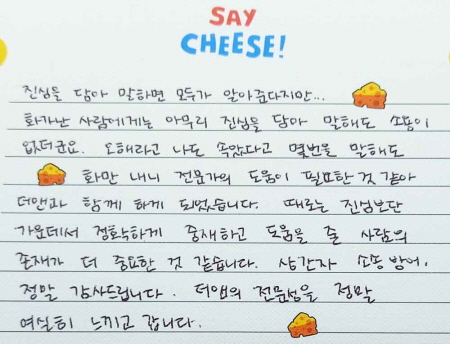 SAY
CHEESE!
진심을 담아 말하면 모두가 알아준다지만...
화가난 사람에게는 아무리 진심을 담아 말해도 소용이
없더군요. 오해라고 나도 속았다고 몇번을 말해도
화만 내니 전문가의 도움이 필요한 것 같아
더앤과 함께 하게 되었습니다. 때로는 진심보단
가운데서 정확하게 중재하고 도움을 줄 사람의
존재가 더 중요한 것 같습니다. 상간자 소송 방어,
정말 감사드립니다. 더앤의 전문성을 정말
여실히 느끼고 갑니다.